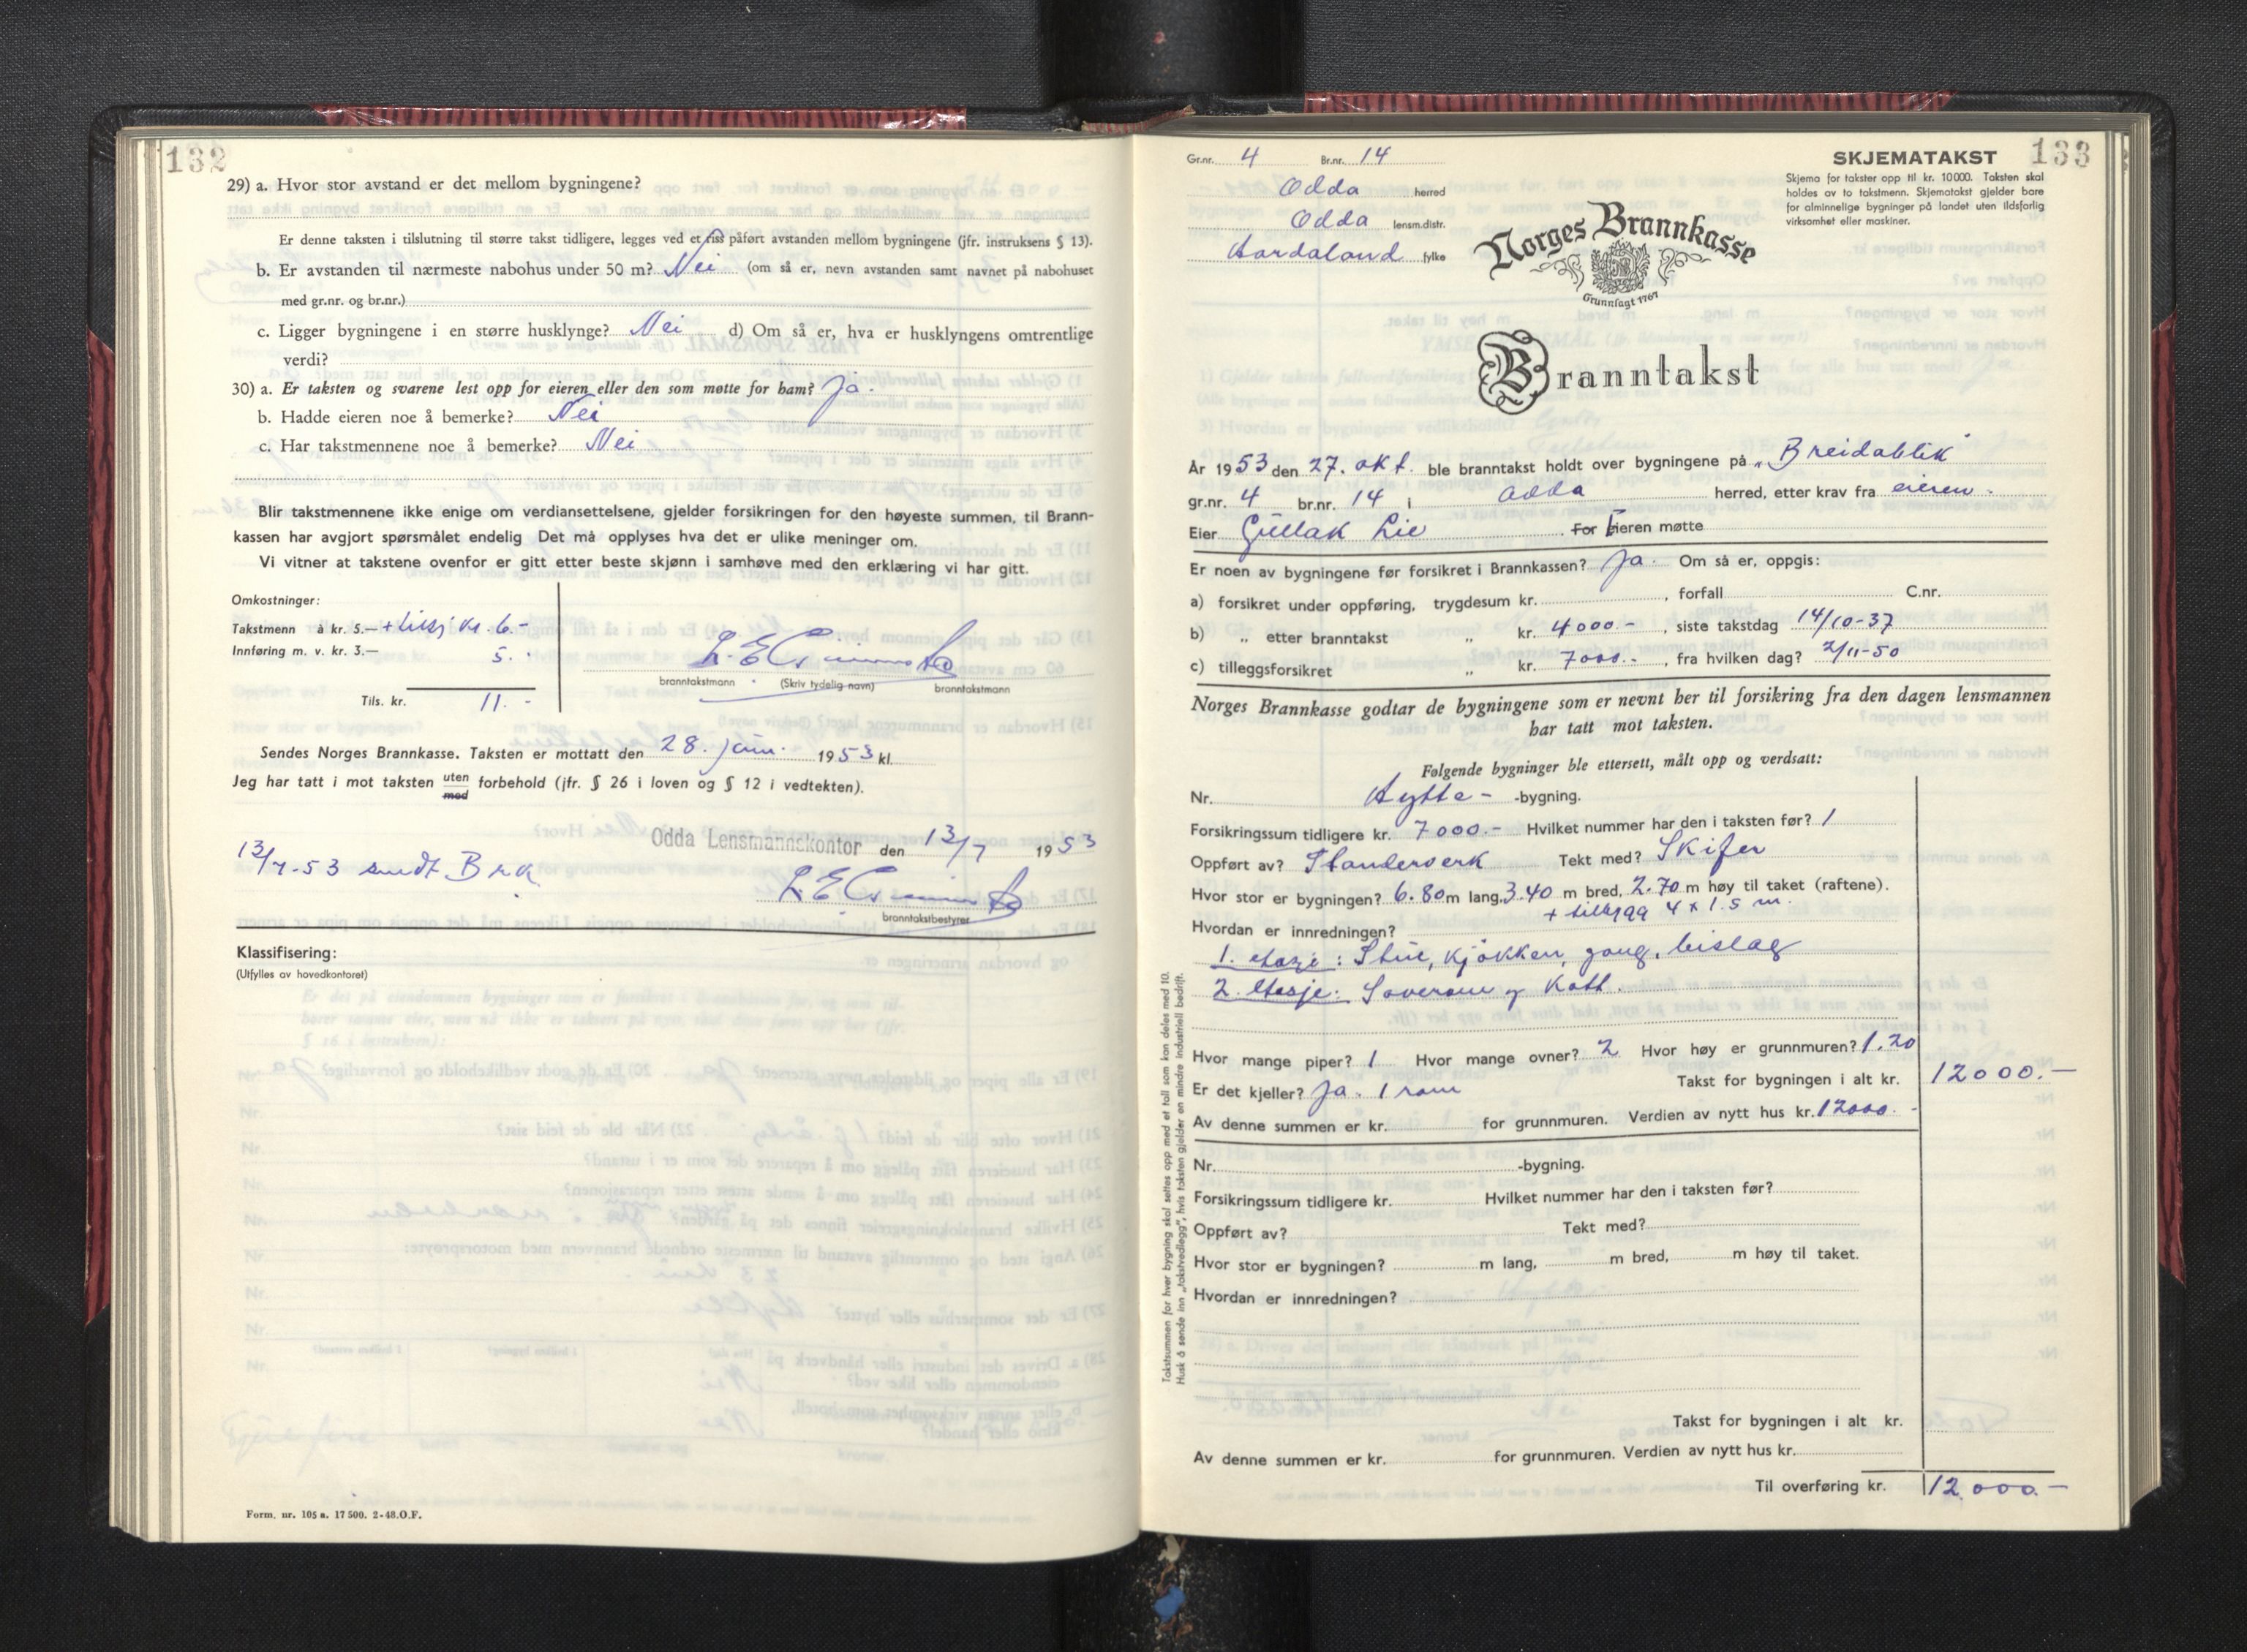 132
29) a. Hvor stor avstand er det mellom bygningene?
Er denne taksten i tilslutning til større takst tidligere, legges ved et riss påført avstanden mellom bygningene (jfr. instruksens § 13).
b. Er avstanden til nærmeste nabohus under 50 m? Nei (om så er, nevn avstanden samt navnet på nabohuset
med gr.nr. og br.nr.)
c. Ligger bygningene i en større husklynge? Nei d) Om så er, hva er husklyngens omtrentlige
verdi?
30) a. Er taksten og svarene lest opp for eieren eller den som møtte for ham? Ja.
b. Hadde eieren noe å bemerke? Nei
c. Har takstmennene noe å bemerke? Nei
Blir takstmennene ikke enige om verdiansettelsene, gjelder forsikringen for den høyeste summen, til Brann-
kassen har avgjort spørsmålet endelig Det må opplyses hva det er ulike meninger om.
Vi vitner at takstene ovenfor er gitt etter beste skjønn i samhøve med den erklæring vi har gitt.
Omkostninger:
Takstmenn à kr. 5.— + kr. 6.-
Innføring m. v. kr. 3.— 5.
Tils. kr. 11.-
branntakstmann (Skriv tydelig navn) branntakstmann
Sendes Norges Brannkasse. Taksten er mottatt den 28. jan. 1953 kl.
Jeg har tatt i mot taksten uten forbehold (jfr. § 26 i loven og § 12 i vedtekten).
med
Odda Lensmannskontor den 13/7 1953
13/7-53 sendt Brk.
branntakstbestyrer
Klassifisering:
(Utfylles av hovedkontoret)
Form. nr. 105 a. 17 500. 2-48. O.F.
Gr.nr. 4 Br.nr. 14
SKJEMATAKST 133
Odda herred
Odda lensm.distr.
Hordaland fylke
Skjema for takster opp til kr. 10000. Taksten skal
holdes av to takstmenn. Skjematakst gjelder bare
for alminnelige bygninger på landet uten ildsfarlig
virksomhet eller maskiner.
Norges Brannkasse
Grunnlagt 1767
Branntakst
År 1953 den 27. okt. ble branntakst holdt over bygningene på „Breidablik"
gr.nr. 4 br.nr. 14 i Odda herred, etter krav fra eieren.
Eier Gullak Lie. For Eieren møtte
Er noen av bygningene før forsikret i Brannkassen? Ja. Om så er, oppgis:
a) forsikret under oppføring, trygdesum kr. , forfall C.nr.
b) „ etter branntakst „ kr. 4000.- , siste takstdag 14/10-37
c) tilleggsforsikret „ kr. 7000.- , fra hvilken dag? 2/11-50
Norges Brannkasse godtar de bygningene som er nevnt her til forsikring fra den dagen lensmannen
har tatt mot taksten.
Følgende bygninger ble ettersett, målt opp og verdsatt:
Nr. Hytte- -bygning.
Forsikringssum tidligere kr. 7000.- Hvilket nummer har den i taksten før? 1
Oppført av? Standerverk Tekt med? Skifer
Hvor stor er bygningen? 6.80 m lang, 3.40 m bred, 2.70 m høy til taket (raftene).
+ tillegg 4 x 1.5 m.
Hvordan er innredningen?
1. etasje: Stue, kjøkken, gang, bislag
2. etasje: Soverom og kott.
Hvor mange piper? 1 Hvor mange ovner? 2 Hvor høy er grunnmuren? 1.20
Er det kjeller? Ja. 1 rom Takst for bygningen i alt kr. 12000.-
Av denne summen er kr. for grunnmuren. Verdien av nytt hus kr. 12000.-
Nr. -bygning.
Forsikringssum tidligere kr. Hvilket nummer har den i taksten før?
Oppført av? Tekt med?
Hvor stor er bygningen? m lang, m bred, m høy til taket.
Hvordan er innredningen?
Takst for bygningen i alt kr.
Av denne summen er kr. for grunnmuren. Verdien av nytt hus kr.
Til overføring kr. 12.000.-
Takstsummen for hver bygning skal settes opp med et tall som kan deles med 10.
Husk å sende inn „takstvedlegg", hvis taksten gjelder en mindre industriell bedrift.